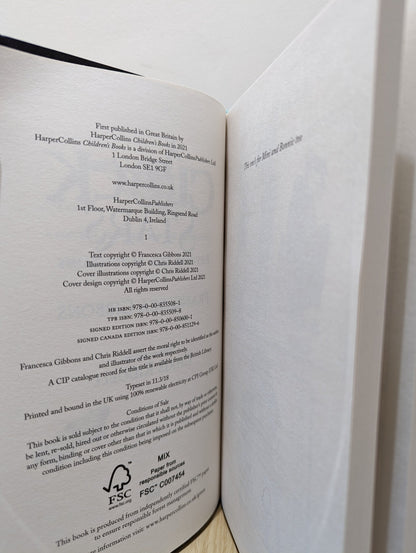 First published in Great Britain by
HarperCollins Children's Books in 2021
HarperCollins Children's Books is a division of HarperCollinsPublishers Ltd
1 London Bridge Street
London SE1 9GF
www.harpercollins.co.uk
HarperCollinsPublishers
1st Floor, Watermarque Building, Ringsend Road
Dublin 4, Ireland
1
Text copyright © Francesca Gibbons 2021
Illustrations copyright © Chris Riddell 2021
Cover illustrations copyright © Chris Riddell 2021
Cover design copyright © HarperCollinsPublishers Ltd 2021
All rights reserved
HB ISBN: 978-0-00-835508-1
TPB ISBN: 978-0-00-835509-8
SIGNED EDITION ISBN: 978-0-00-850600-1
SIGNED CANADA EDITION ISBN: 978-0-00-851129-6
Francesca Gibbons and Chris Riddell assert the moral right to be identified as the author
and illustrator of the work respectively.
A CIP catalogue record for this title is available from the British Library.
Typeset in 11.3/18
Printed and bound in the UK using 100% renewable electricity at CPI Group (UK) Ltd
Conditions of Sale
This book is sold subject to the condition that it shall not, by way of trade or otherwise,
be lent, re-sold, hired out or otherwise circulated without the publisher's prior consent in
any form, binding or cover other than that in which it is published and without a similar
condition including this condition being imposed on the subsequent purchaser.
FSC
www.fsc.org
MIX
Paper from
responsible sources
FSC™ C007454
This book is produced from independently certified FSC™ paper
to ensure responsible forest management.
information visit: www.harpercollins.co.uk/green
This one's for Mini and Bonnie